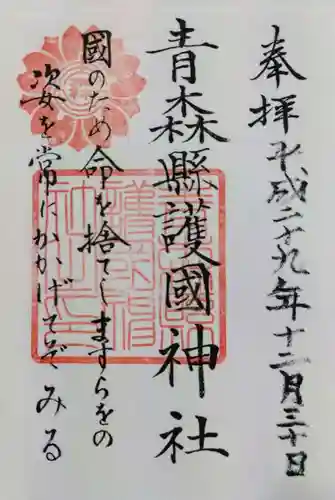 奉拝 平成二十九年十二月三十日
青森縣護國神社
國のため命を捨てしますらをの
姿を常にかかげてぞみる